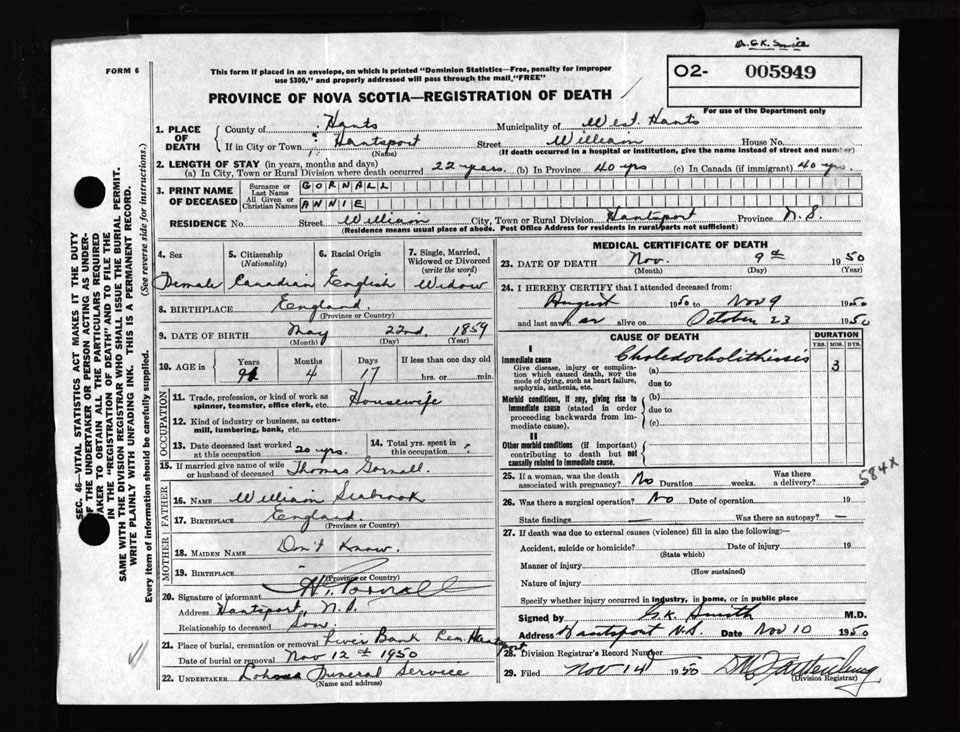 Dr. G.K. Smith
FORM 6
This form if placed in an envelope, on which is printed "Dominion Statistics—Free, penalty for improper
use $300," and properly addressed will pass through the mail, "FREE"
O2- 005949
For use of the Department only
PROVINCE OF NOVA SCOTIA—REGISTRATION OF DEATH
1. PLACE OF DEATH
County of Hants Municipality of West Hants
If in City or Town Hantsport Street William House No.
(Name) (If death occurred in a hospital or institution, give the name instead of street and number)
2. LENGTH OF STAY (in years, months and days)
(a) In City, Town or Rural Division where death occurred 22 years (b) In Province 40 yrs (c) In Canada (if immigrant) 40 yrs.
3. PRINT NAME OF DECEASED
Surname or Last Name GORNALL
All Given or Christian Names ANNIE
RESIDENCE No. Street William City, Town or Rural Division Hantsport Province N.S.
(Residence means usual place of abode. Post Office Address for residents in rural parts not sufficient)
4. Sex Female
5. Citizenship (Nationality) Canadian
6. Racial Origin English
7. Single, Married, Widowed or Divorced (write the word) Widow
8. BIRTHPLACE England
(Province or Country)
9. DATE OF BIRTH May 22nd 1859
(Month) (Day) (Year)
10. AGE in Years 91 Months 4 Days 17 If less than one day old
hrs. or min.
OCCUPATION
11. Trade, profession, or kind of work as spinner, teamster, office clerk, etc. Housewife
12. Kind of industry or business, as cotton-mill, lumbering, bank, etc.
13. Date deceased last worked at this occupation 20 yrs. 14. Total yrs. spent in this occupation ?
15. If married give name of wife or husband of deceased Thomas Gornall.
FATHER
16. NAME William Seabrook
17. BIRTHPLACE England.
(Province or Country)
MOTHER
18. MAIDEN NAME Don't Know.
19. BIRTHPLACE
(Province or Country)
20. Signature of informant H. Gornall
Address Hantsport, N.S.
Relationship to deceased Son.
21. Place of burial, cremation or removal River Bank Cem. Hantsport
Date of burial or removal Nov 12th 1950
22. UNDERTAKER Funeral Service
(Name and address)
MEDICAL CERTIFICATE OF DEATH
23. DATE OF DEATH Nov. 9th 1950
(Month) (Day) (Year)
24. I HEREBY CERTIFY that I attended deceased from:
August 1950 to Nov 9 1950
and last saw er alive on October 23 1950
CAUSE OF DEATH
DURATION
YRS. MOS. DYS.
I
Immediate cause
Give disease, injury or complication which caused death, NOT the mode of dying, such as heart failure, asphyxia, asthenia, etc.
(a) Choledocholithiasis 3
due to
Morbid conditions, if any, giving rise to immediate cause (stated in order proceeding backwards from immediate cause).
(b)
due to
(c)
II
Other morbid conditions (if important) contributing to death but not causally related to immediate cause.
584X
25. If a woman, was the death associated with pregnancy? No Duration weeks. Was there a delivery?
26. Was there a surgical operation? No Date of operation 19
State findings — Was there an autopsy? —
27. If death was due to external causes (violence) fill in also the following:—
Accident, suicide or homicide? Date of injury 19
(State which)
Manner of injury
(How sustained)
Nature of injury
Specify whether injury occurred in industry, in home, or in public place
Signed by G.K. Smith M.D.
Address Hantsport N.S. Date Nov 10 1950
28. Division Registrar's Record Number 8
29. Filed Nov 14 1950
(Division Registrar)
SEC. 46—VITAL STATISTICS ACT MAKES IT THE DUTY
OF THE UNDERTAKER OR PERSON ACTING AS UNDER-
TAKER TO OBTAIN ALL THE PARTICULARS REQUIRED
IN THE "REGISTRATION OF DEATH" AND TO FILE THE
SAME WITH THE DIVISION REGISTRAR WHO SHALL ISSUE THE BURIAL PERMIT.
WRITE PLAINLY WITH UNFADING INK. THIS IS A PERMANENT RECORD.
Every item of information should be carefully supplied. (See reverse side for instructions.)